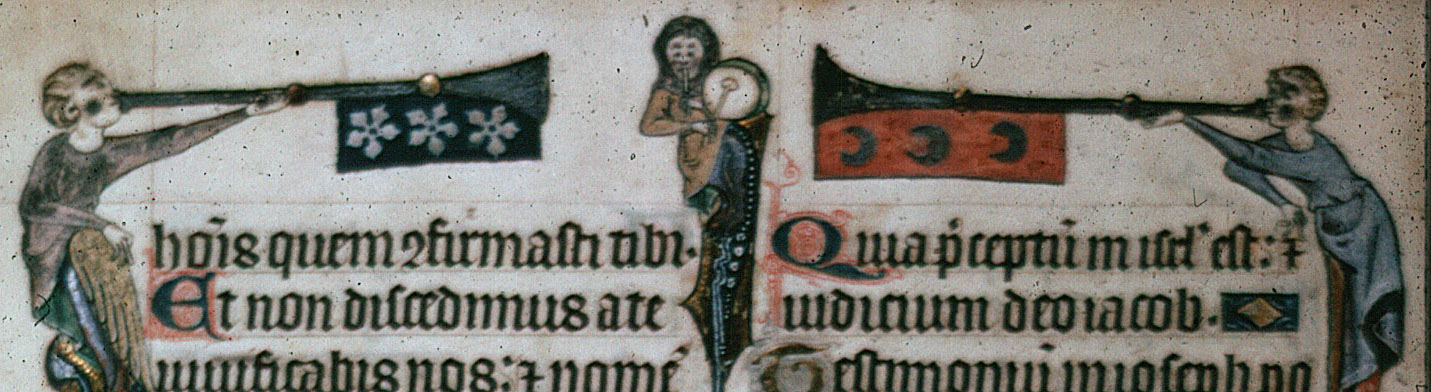 hoı̄s quem ꝯfirmasti tibi.
Et non discedimus a te
uiuificabis nos: ⁊ nomē
Quia p̄ceptū in isrl' est: ⁊
iudicium deo iacob.
Testimoniū in ioseph po